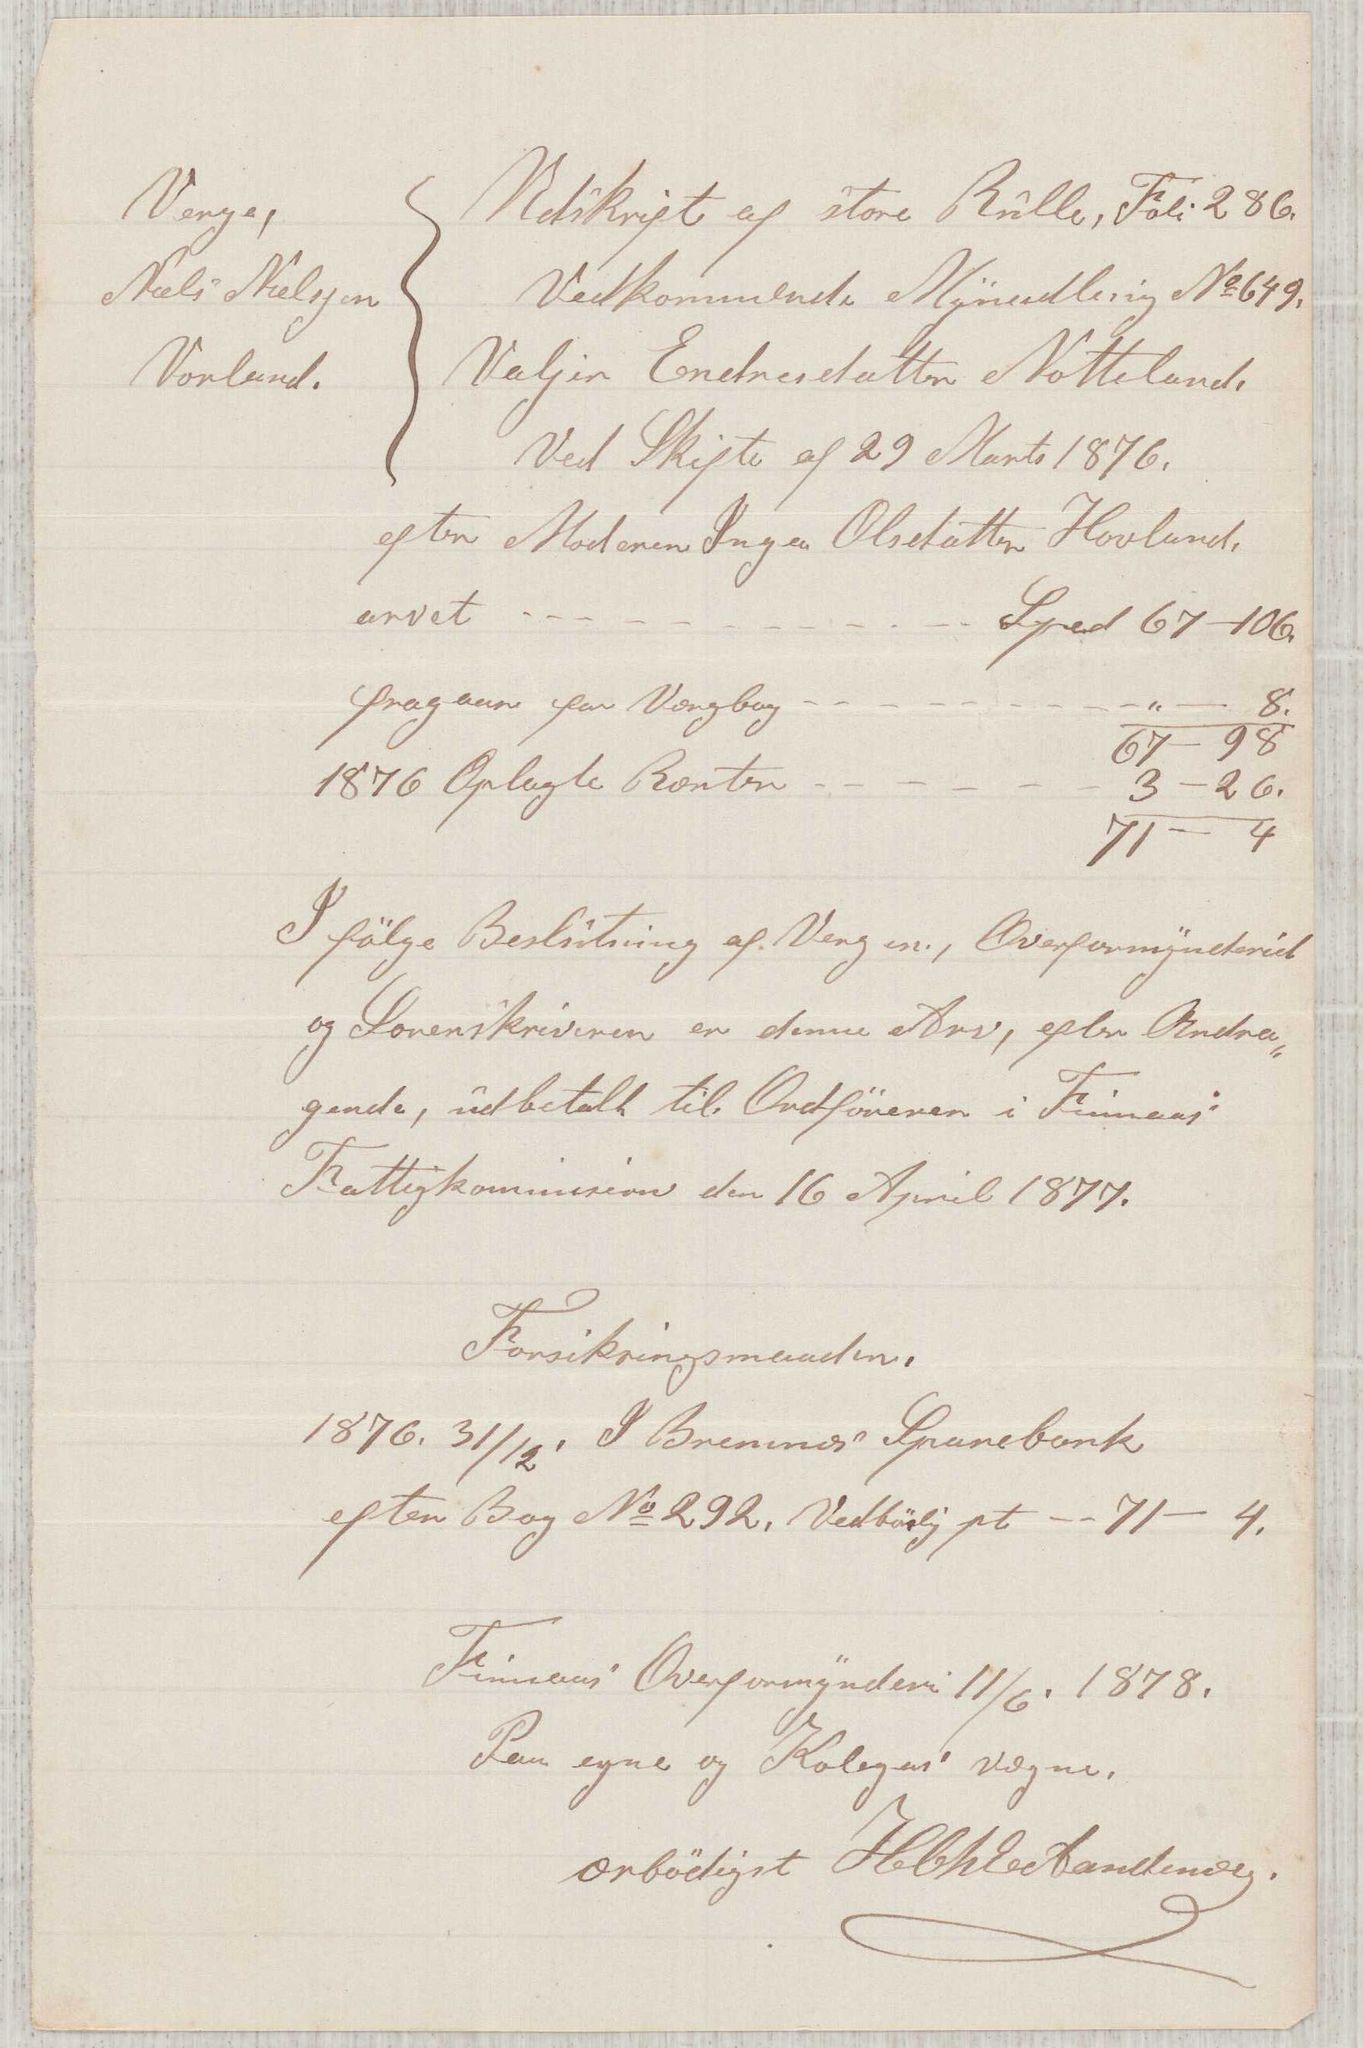 Verge,
Niels Nielsen
Vorland.
Udskrift af store Rulle, Foli 286.
Vedkommende Myndling No 649.
Valjer Endresdatter Notteland.
Ved Skifte af 29 Marts 1876.
efter Moderen Inga Olsdatter Hovland.
arvet - - - - - - - - - - - - Spred 67 - 106.
fragaar for Vergbog - - - - - - - - - - „ - 8.
67 - 98
1876 Oplagte Renter - - - - - - 3 - 26.
71 - 4
I følge Beslutning af Vergen, Overformynderiet
og Sorenskriveren er denne Arv, efter Andra„
gende, udbetalt til Ordføreren i Finnaas
Fattigkommission den 16 April 1877.
Forsikringsmaaden.
1876. 31/12. I Bremnes Sparebank
efter Bog No 292. Vedbørlig pt -- 71 - 4.
Finnaas Overformynderi 11/6. 1878.
Paa egne og Kolegas vegne.
ærbødigst